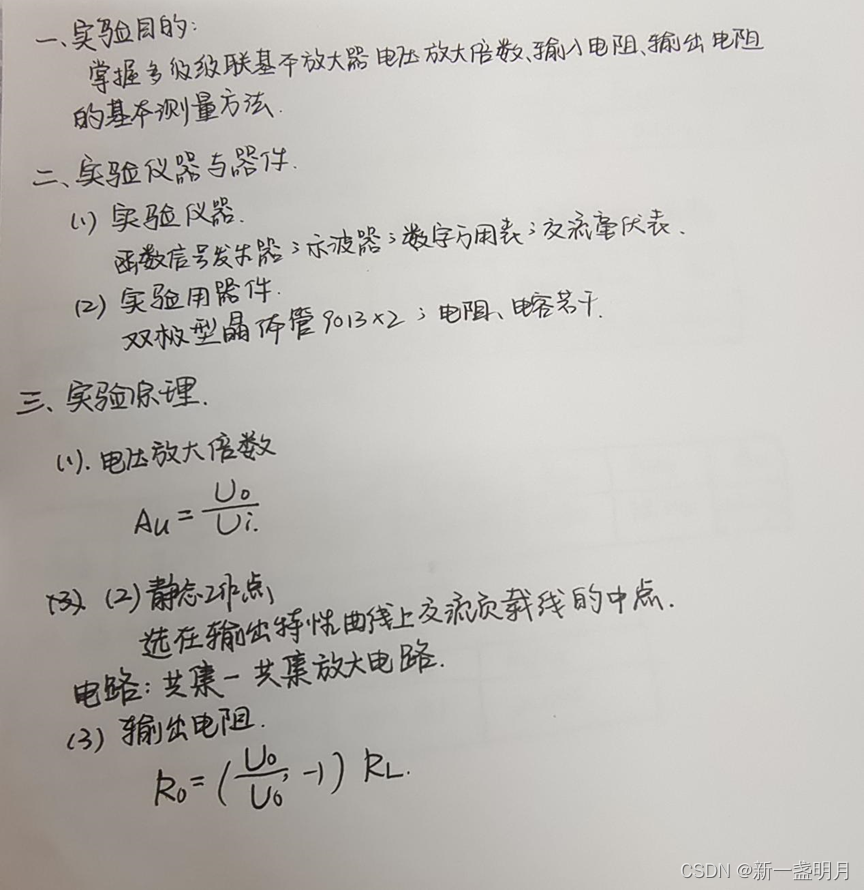 一、实验目的:
掌握多级级联基本放大器电压放大倍数、输入电阻、输出电阻
的基本测量方法.
二、实验仪器与器件.
(1) 实验仪器.
函数信号发生器;示波器;数字万用表;交流毫伏表.
(2) 实验用器件.
双极型晶体管9013×2;电阻、电容若干.
三、实验原理.
(1). 电压放大倍数
Au = Uo / Ui.
(2) 静态工作点
选在输出特性曲线上交流负载线的中点.
电路:共集一共集放大电路.
(3) 输出电阻.
Ro = (Uo / Uo' -1) RL.
CSDN @新一盏明月